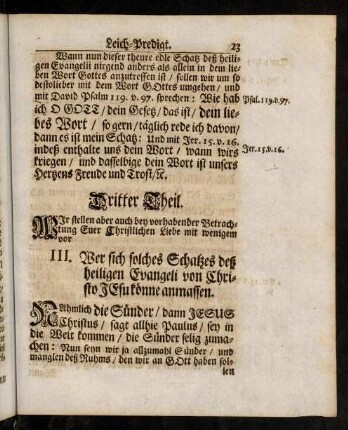 Leich-Predigt. 23
Wann nun dieser theure edle Schatz deß heili-
gen Evangeli nirgend anders als allein in dem lie-
ben Wort Gottes anzutreffen ist / sollen wir um so
destolieber mit dem Wort GOttes umgehen / und
mit David Psalm 119. v. 97. sprechen: Wie hab
Psal. 119. v. 97.
ich O GOTT / dein Gesetz / das ist / dein lie-
bes Wort / so gern / täglich rede ich davon /
dann es ist mein Schatz: Und mit Jer. 15. v. 16.
indeß enthalte uns dein Wort / wann wirs
Jer. 15. v. 16.
kriegen / und dasselbige dein Wort ist unsers
Hertzens Freude und Trost / ꝛc.
Dritter Theil.
WJr stellen aber auch bey vorhabender Betrach-
tung Euer Christlichen Liebe mit wenigem
vor
III. Wer sich solches Schatzes deß
heiligen Evangeli von Chri-
sto JEsu könne anmassen.
NAhmlich die Sünder / dann JESUS
Christus / sagt allhie Paulus / sey in
die Welt kommen / die Sünder selig zuma-
chen: Nun seyn wir ja allzumahl Sünder / und
manglen deß Ruhms / den wir an GOtt haben sol-
len